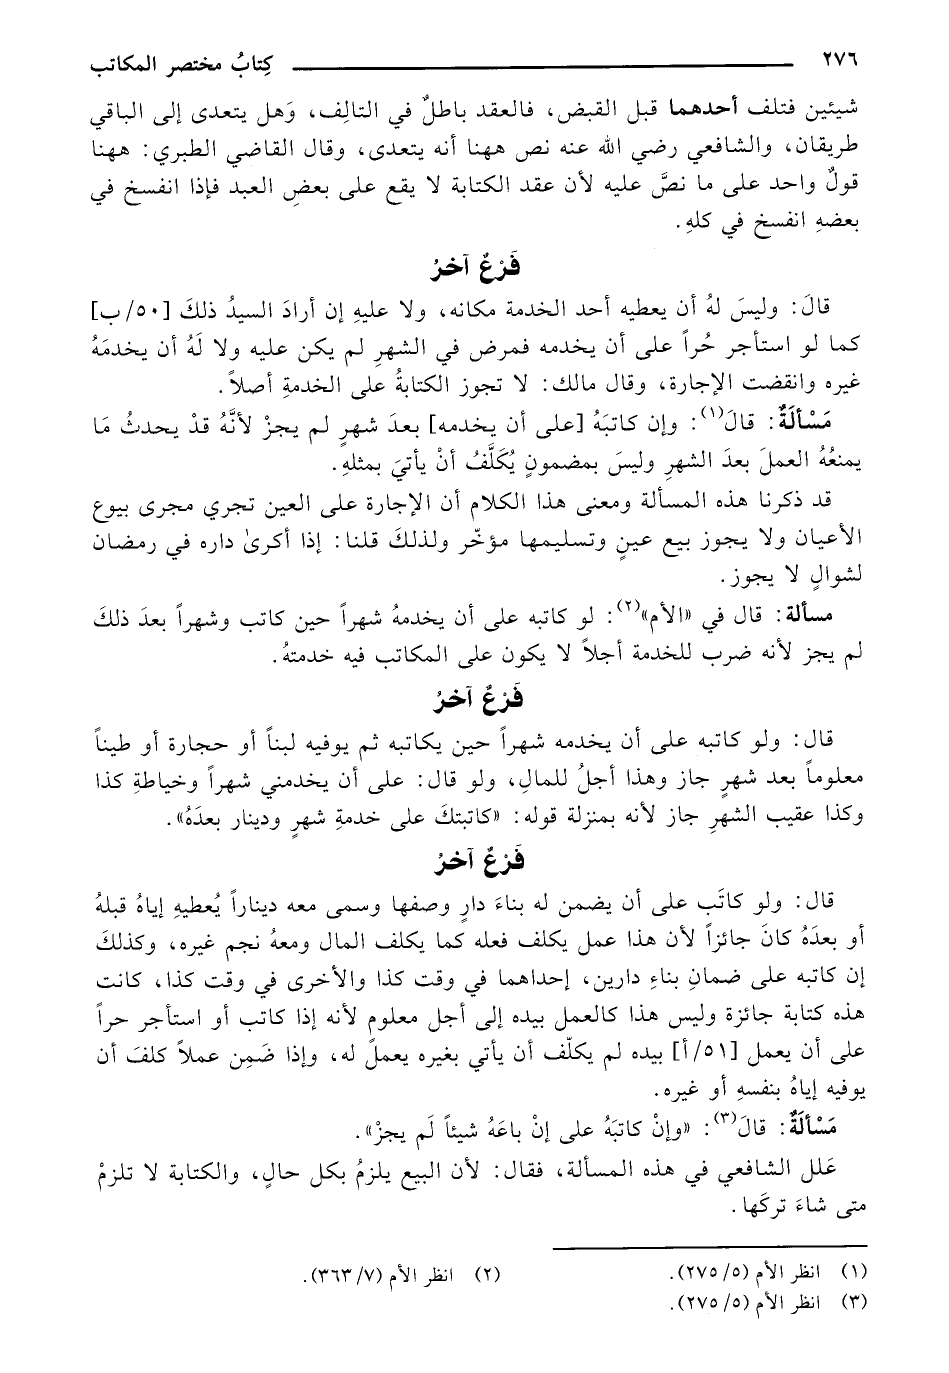 ٢٧٦ كِتابُ مختصر المكاتب
شيئين فتلف أحدهما قبل القبض، فالعقد باطلٌ في التالِف، وَهل يتعدى إلى الباقي
طريقان، والشافعي رضي الله عنه نص ههنا أنه يتعدى، وقال القاضي الطبري: ههنا
قولٌ واحد على ما نصَّ عليه لأن عقد الكتابة لا يقع على بعضِ العبد فإذا انفسخ في
بعضهِ انفسخ في كلهِ.
فَرْعٌ آخرُ
قالَ: وليسَ لهُ أن يعطيه أحد الخدمة مكانه، ولا عليهِ إن أرادَ السيدُ ذلكَ [٥٠/ب]
كما لو استأجر حُراً على أن يخدمه فمرض في الشهرِ لم يكن عليه ولا لَهُ أن يخدمَهُ
غيره وانقضت الإجارة، وقال مالك: لا تجوز الكتابةُ على الخدمةِ أصلاً.
مَسْألَةٌ: قالَ(١): وإن كاتبَهُ [على أن يخدمه] بعدَ شهرٍ لم يجزْ لأنَّهُ قدْ يحدثُ مَا
يمنعُهُ العملَ بعدَ الشهرِ وليسَ بمضمونٍ يُكَلَّفُ أنْ يأتيَ بمثلهِ.
قد ذكرنا هذه المسألة ومعنى هذا الكلام أن الإجارة على العين تجري مجرى بيوع
الأعيان ولا يجوز بيع عينٍ وتسليمها مؤخّر ولذلكَ قلنا: إذا أكرىٰ داره في رمضان
لشوالٍ لا يجوز.
مسألة: قال في «الأم»(٢): لو كاتبه على أن يخدمهُ شهراً حين كاتب وشهراً بعدَ ذلكَ
لم يجز لأنه ضرب للخدمة أجلاً لا يكون على المكاتب فيه خدمتهُ.
فَرْعٌ آخرُ
قال: ولو كاتبه على أن يخدمه شهراً حين يكاتبه ثم يوفيه لبناً أو حجارة أو طيناً
معلوماً بعد شهرٍ جاز وهذا أجلُ للمالِ، ولو قال: على أن يخدمني شهراً وخياطةِ كذا
وكذا عقيب الشهرِ جاز لأنه بمنزلة قوله: «كاتبتكَ على خدمةِ شهرٍ ودينار بعدَهُ».
فَرْعٌ آخرُ
قال: ولو كاتَب على أن يضمن له بناءَ دارٍ وصفها وسمى معه ديناراً يُعطيهِ إياهُ قبلهُ
أو بعدَهُ كانَ جائزاً لأن هذا عمل يكلف فعله كما يكلف المال ومعهُ نجم غيره، وكذلكَ
إن كاتبه على ضمانِ بناءِ دارين، إحداهما في وقت كذا والأخرى في وقت كذا، كانت
هذه كتابة جائزة وليس هذا كالعمل بيده إلى أجل معلوم لأنه إذا كاتب أو استأجر حراً
على أن يعمل [٥١/أ] بيده لم يكلّف أن يأتي بغيره يعملً له، وإذا ضَمِن عملاً كلفَ أن
يوفيه إياهُ بنفسهِ أو غيره.
مَسْألَةٌ: قالَ(٣): «وإنْ كاتبَهُ على إنْ باعَهُ شيئاً لَم يجزْ».
عَلل الشافعي في هذه المسألة، فقال: لأن البيع يلزمُ بكل حالٍ، والكتابة لا تلزمْ
متى شاءَ تركَها.
(١) انظر الأم (٥/ ٢٧٥). (٢) انظر الأم (٧/ ٣٦٣).
(٣) انظر الأم (٥/ ٢٧٥).